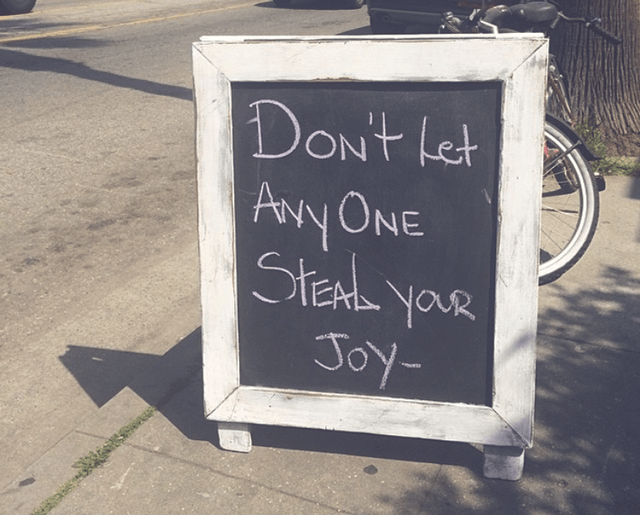 Don't Let
AnyOne
Steal your
Joy-